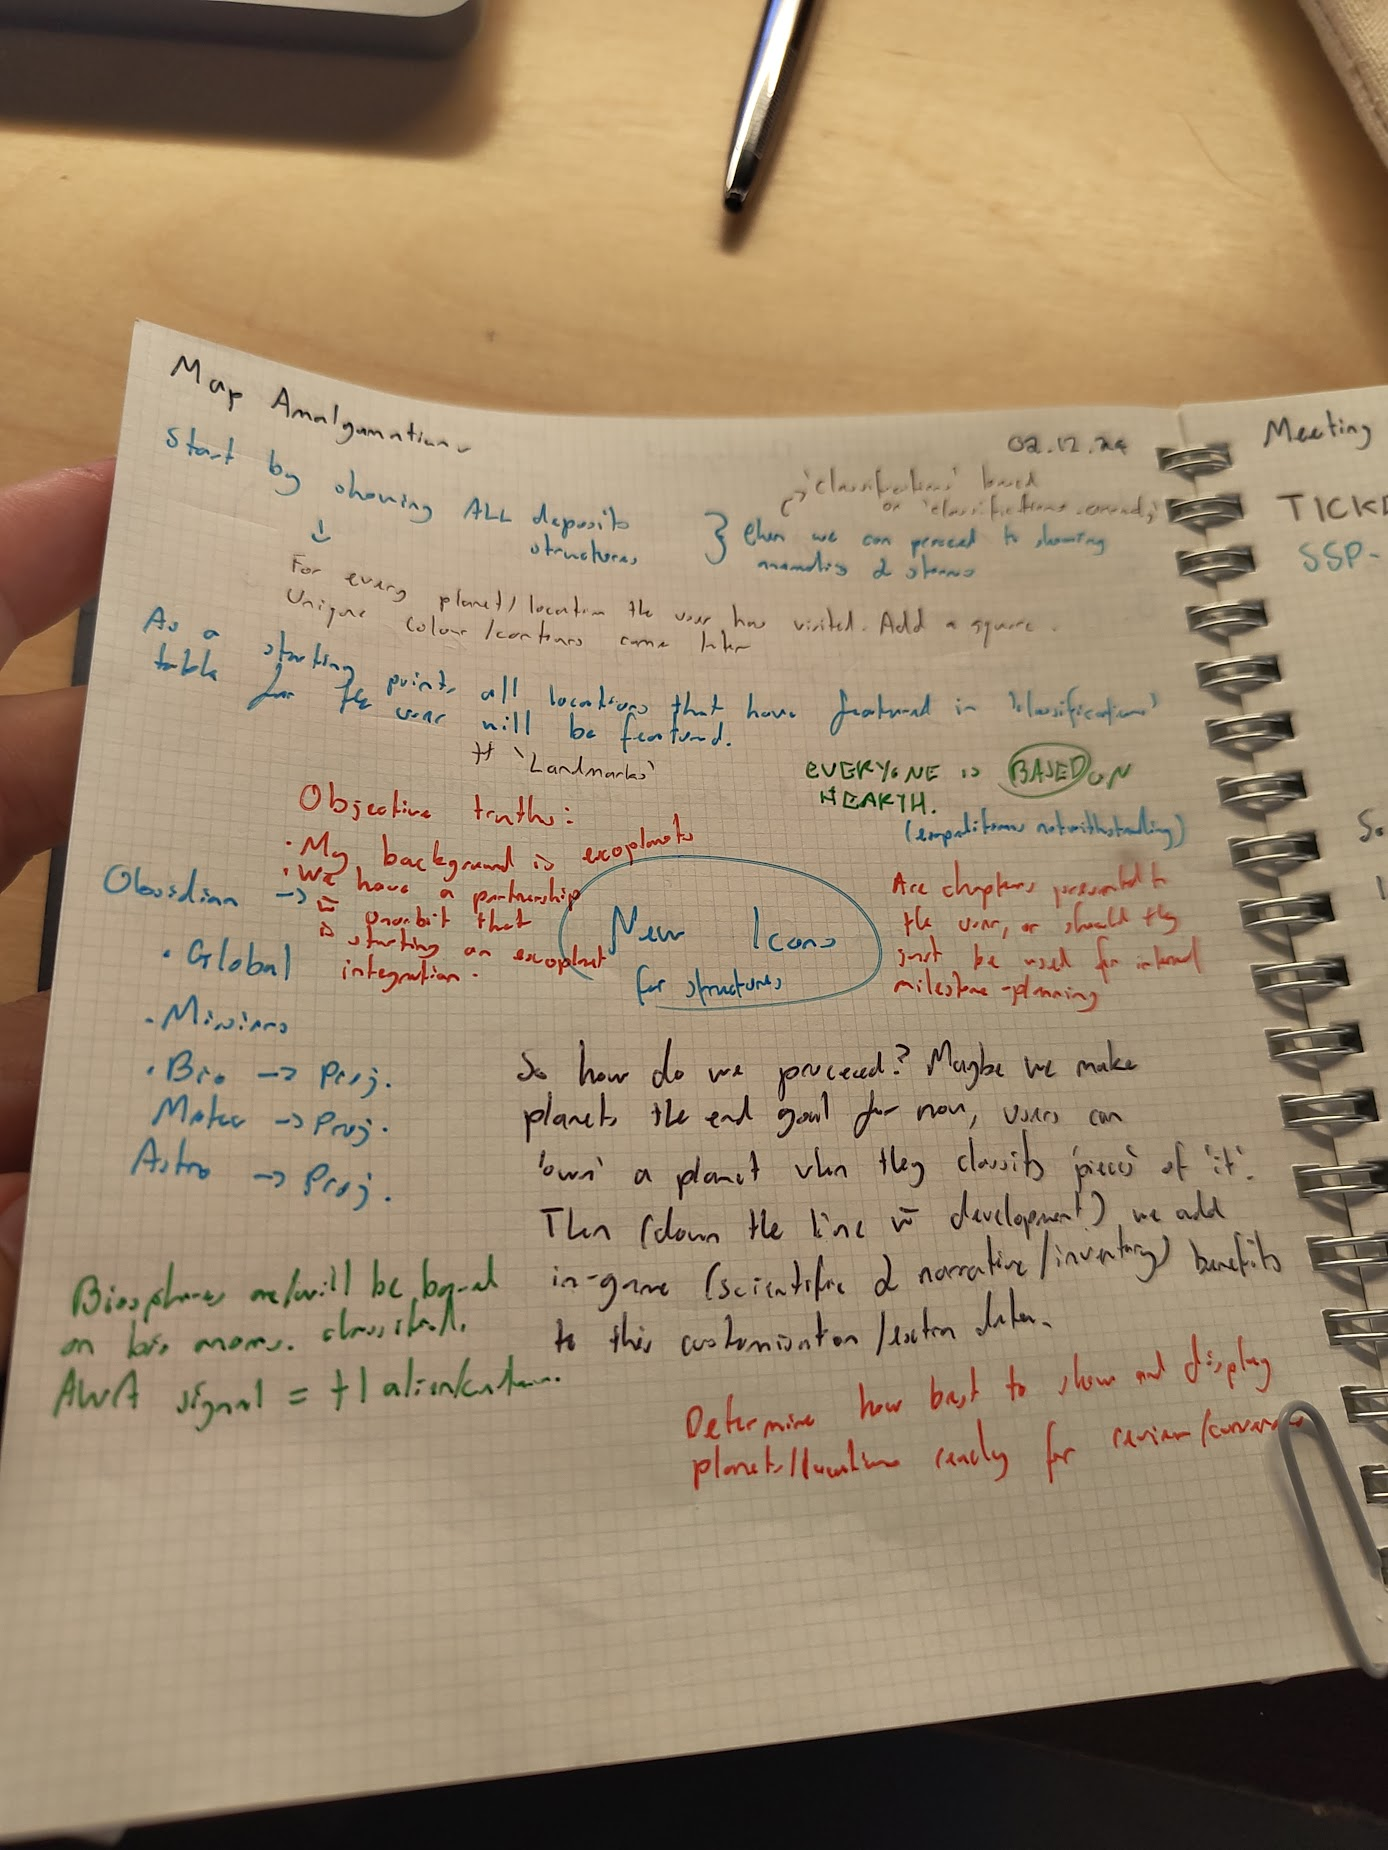 Map Amalgamation
02.12.24
Start by showing ALL deposits
structures
'classifications' based
on 'classifications.
} then we can proceed to showing
anomalies & 
For every planet/location the user has visited. Add a square.
Unique colour/contours come later
As a starting point, all locations that have featured in 'classifications'
table for the user will be featured.
# 'Landmarks'
EVERYONE is BASED ON
HEARTH.
(expeditions notwithstanding)
Objective truths:
· My background is exoplanets
· We have a partnership
w̄ that
is starting an exoplanet
integration.
Obsidian →
· Global
· Missions
· Bio → Proj.
Meteo → Proj.
Astro → Proj.
New Icons
for structures
Are chapters presented to
the user, or should they
just be used for internal
milestone-planning
So how do we proceed? Maybe we make
planets the end goal for now, users can
'own' a planet when they classify 'pieces' of 'it'.
Then (down the line w̄ development) we add
in-game (scientific & narrative/inventory) benefits
to this customisation/extra data.
Biospheres are/will be based
on bio 
AWA signal = +1
Determine how best to show and display
planets/locations ready for review/
Meeting
SSP-